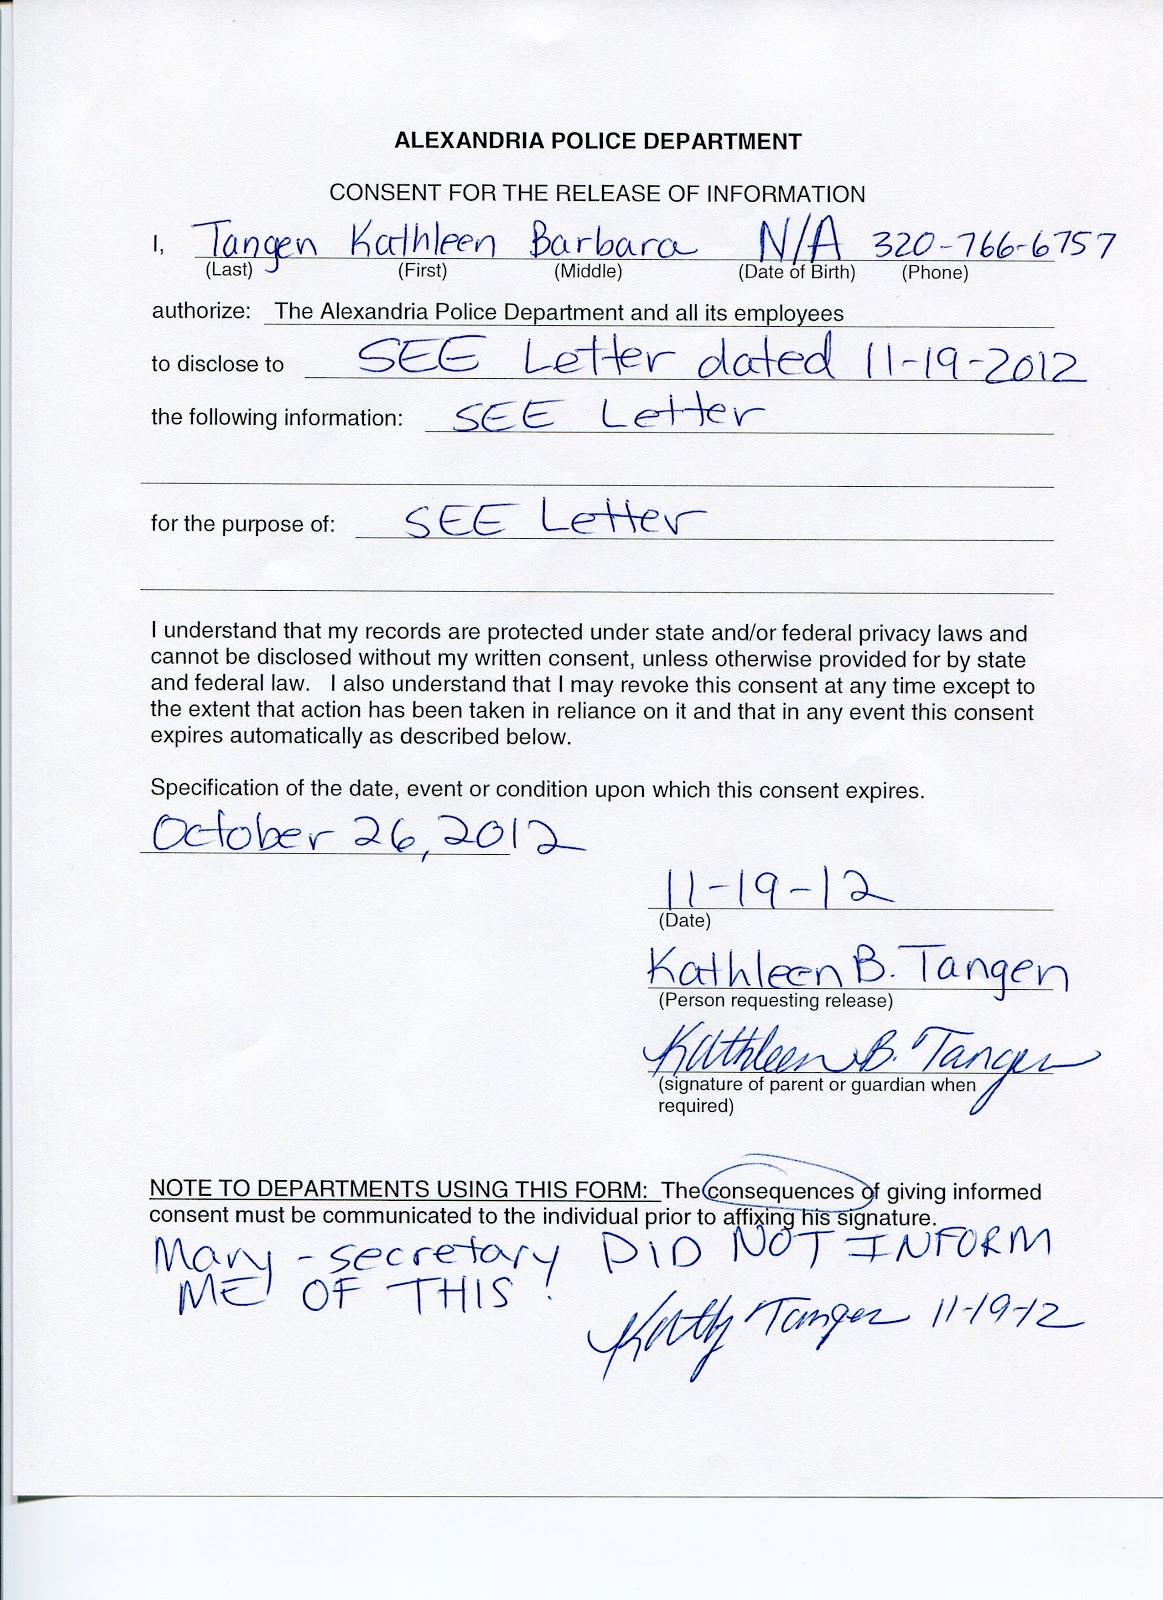 ALEXANDRIA POLICE DEPARTMENT
CONSENT FOR THE RELEASE OF INFORMATION
I, Tangen Kathleen Barbara N/A 320-766-6757
(Last) (First) (Middle) (Date of Birth) (Phone)
authorize: The Alexandria Police Department and all its employees
to disclose to SEE Letter dated 11-19-2012
the following information: SEE Letter
for the purpose of: SEE Letter
I understand that my records are protected under state and/or federal privacy laws and
cannot be disclosed without my written consent, unless otherwise provided for by state
and federal law. I also understand that I may revoke this consent at any time except to
the extent that action has been taken in reliance on it and that in any event this consent
expires automatically as described below.
Specification of the date, event or condition upon which this consent expires.
October 26, 2012
11-19-12
(Date)
Kathleen B. Tangen
(Person requesting release)
Kathleen B. Tangen
(signature of parent or guardian when
required)
NOTE TO DEPARTMENTS USING THIS FORM: The consequences of giving informed
consent must be communicated to the individual prior to affixing his signature.
Mary - secretary DID NOT INFORM
ME OF THIS!
Kathy Tangen 11-19-12